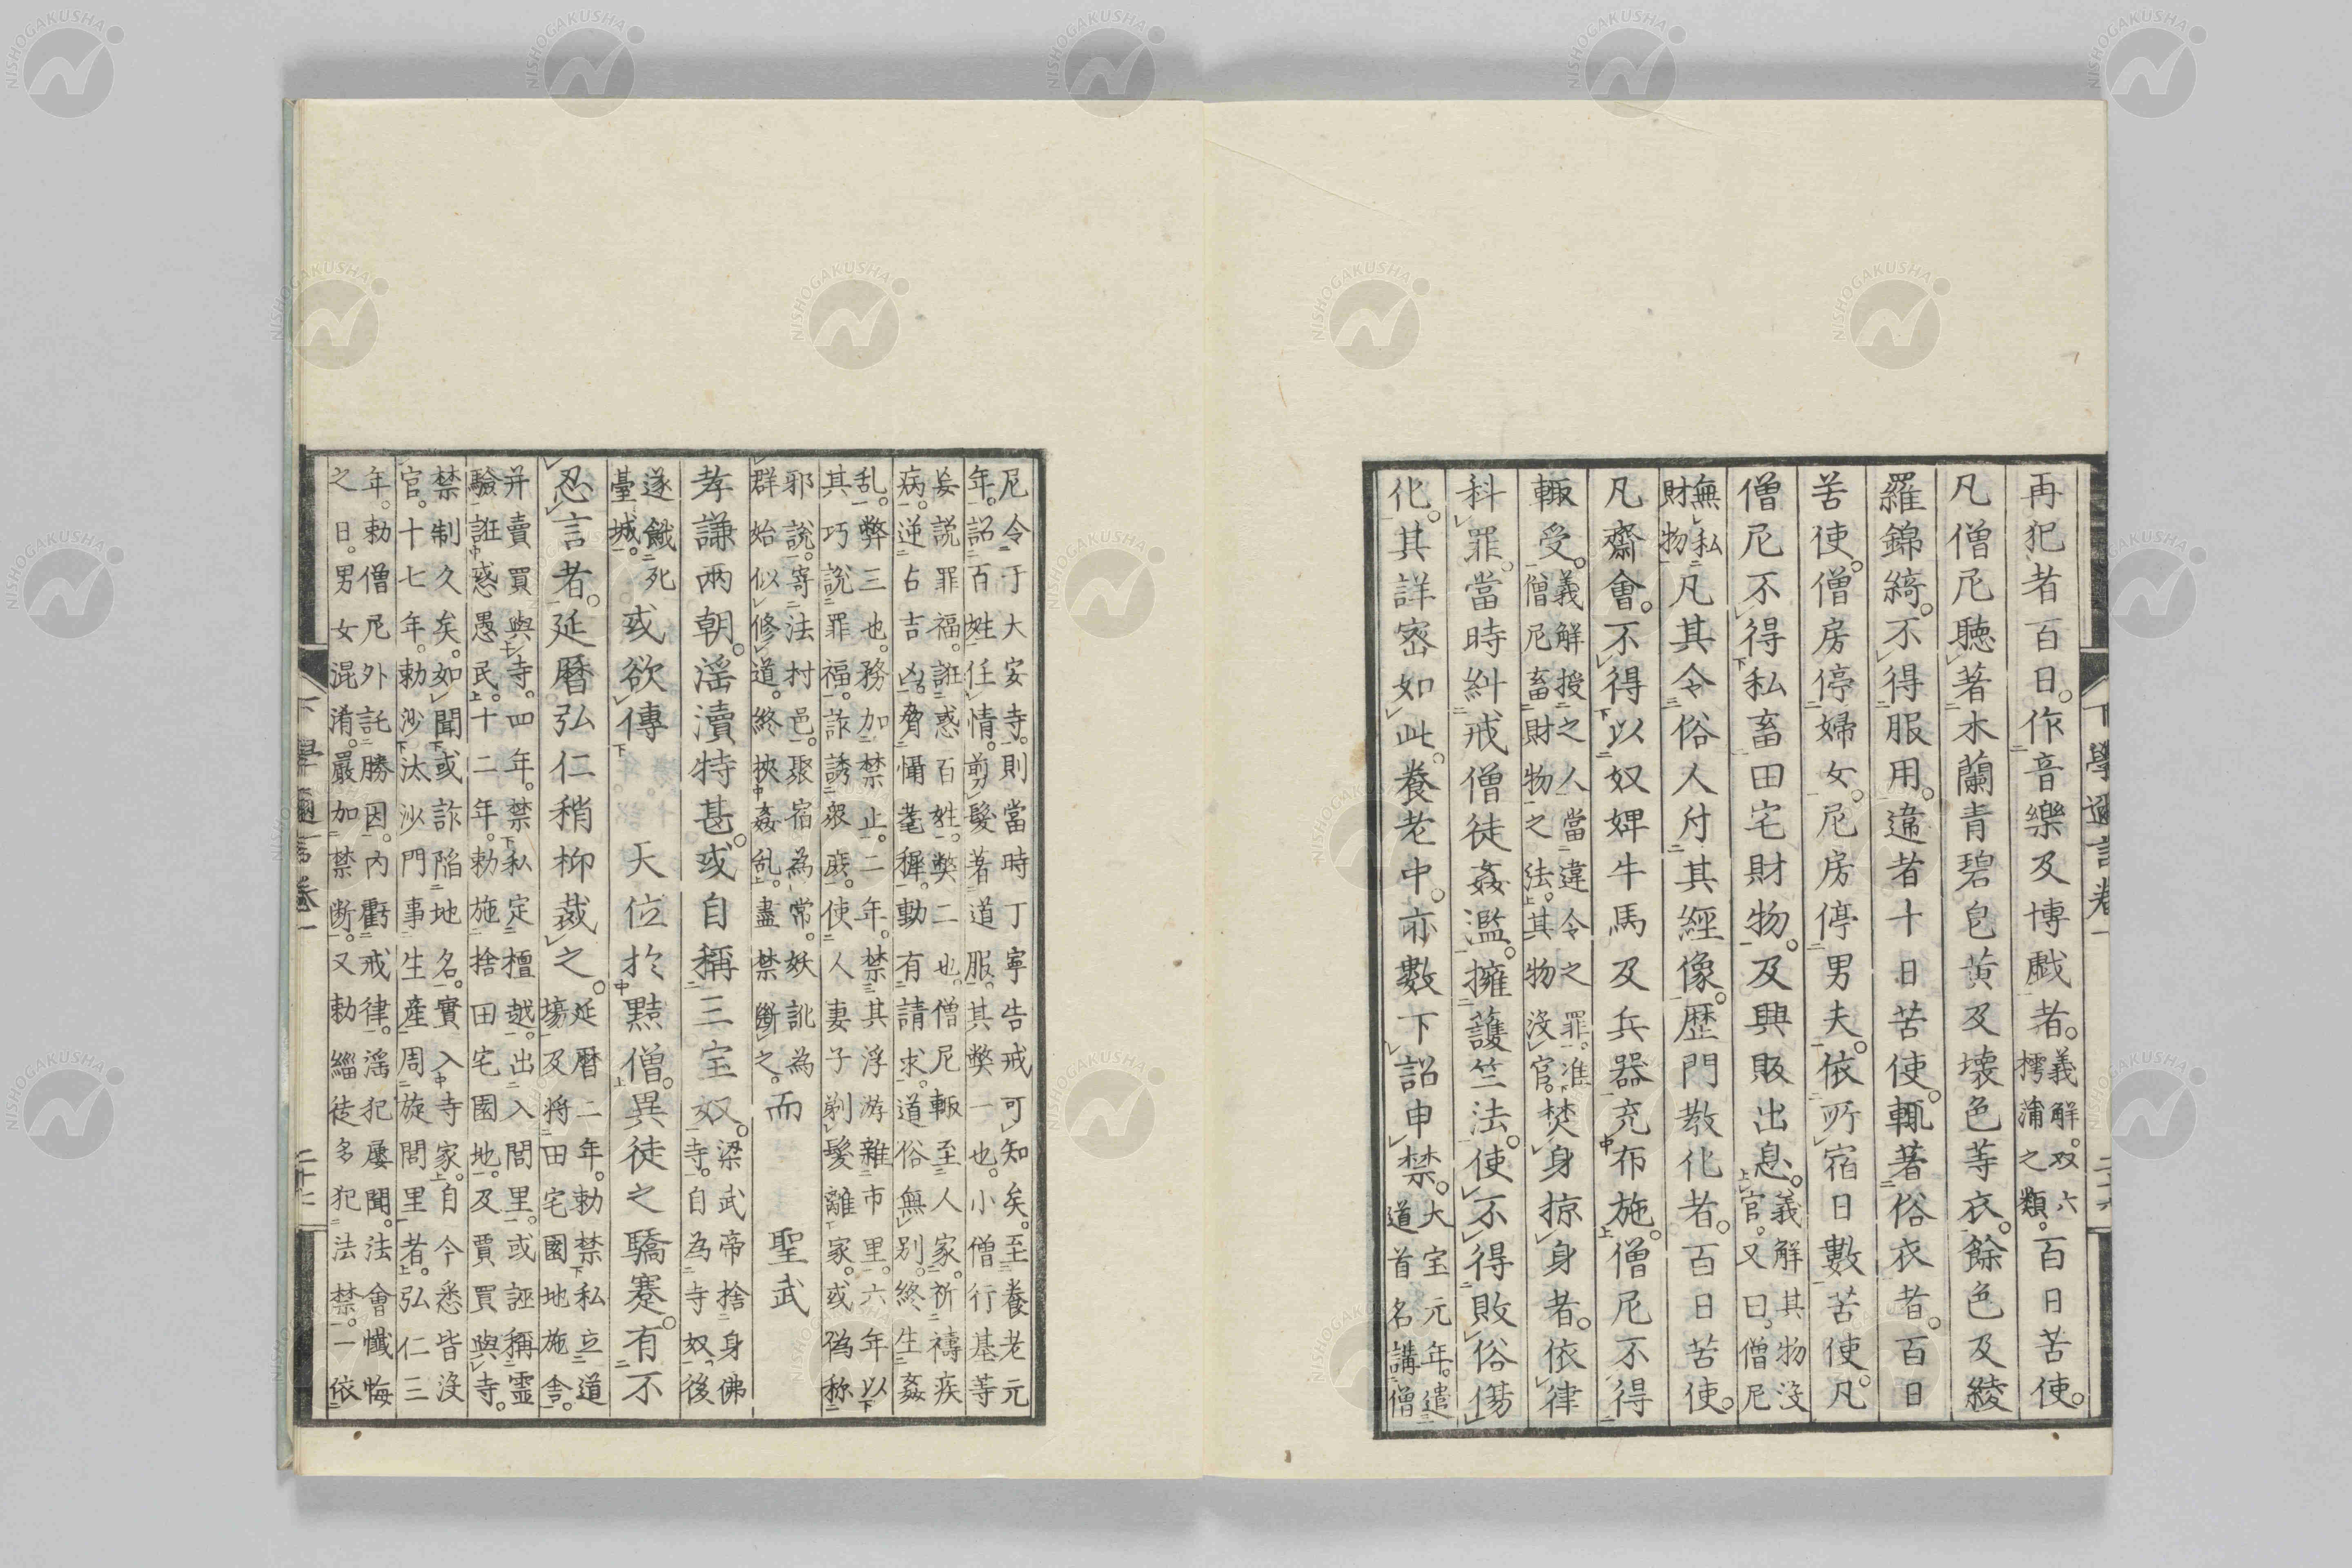 再犯者百日。作音樂及博戯者。義解。双六
樗蒲之類。百日苦使。
凡僧尼聽著木蘭青碧皂黄及壊色等衣。餘色及綾
羅錦綺。不得服用。違者十日苦使。輒著俗衣者。百日
苦使。僧房停婦女。尼房停男夫。依所宿日數苦使。凡
僧尼不得私畜田宅財物。及興販出息。義解其物没
官。又曰。僧尼
無私
財物
凡其令俗人付其經像。歴門教化者。百日苦使。
凡齋會。不得以奴婢牛馬及兵器充布施。僧尼不得
輙受。義解授之人當違令之罪。准
僧尼畜財物之法。其物没官。
焚身掠身者。依律
科罪。當時糾戒僧徒姦濫。擁護竺法。使不得敗俗傷
化。其詳密如此。養老中。亦數下詔申禁。大宝元年。遣
道首名講僧
下學邇言卷一
二十六
尼令于大安寺。則當時丁寧告戒可知矣。至養老元
年。詔百姓任情。剪髮著道服。其弊一也。小僧行基等
妄説罪福。誑惑百姓。弊二也。僧尼輙至人家。祈禱疾
病。逆占吉凶。脅懾耄穉。動有請求。道俗無別。終生姦
乱。弊三也。務加禁止。二年。禁其浮游雜市里。六年以
其巧説罪福。詐誘衆庶。使人妻子剃髮離家。或偽称
邪説。寄法村邑。聚宿為常。妖訛為
群始似修道。終挾姦乱。盡禁斷之。
而　聖武
孝謙兩朝。滛瀆特甚。或自稱三宝奴。梁武帝捨身佛
寺。自為寺奴。後
遂餓死
臺城。
或欲傳　天位於黠僧。異徒之驕蹇。有不
忍言者。延暦弘仁稍抑裁之。延暦二年。勅禁私立道
塲。及将田宅園地施舎。
并賣買與寺。四年。禁私定檀越。出入閭里。或誣稱霊
驗。誑惑愚民。十二年。勅施捨田宅園地。及賈買與寺。
禁制久矣。如聞或詐陷地名。實入寺家。自今悉皆没
官。十七年。勅沙汰沙門事生産周旋閭里者。弘仁三
年。勅僧尼外託勝因。内虧戒律。滛犯屡聞。法會懺悔
之日。男女混淆。嚴加禁断。又勅緇徒多犯法禁。一依
下學邇言卷一
二十七